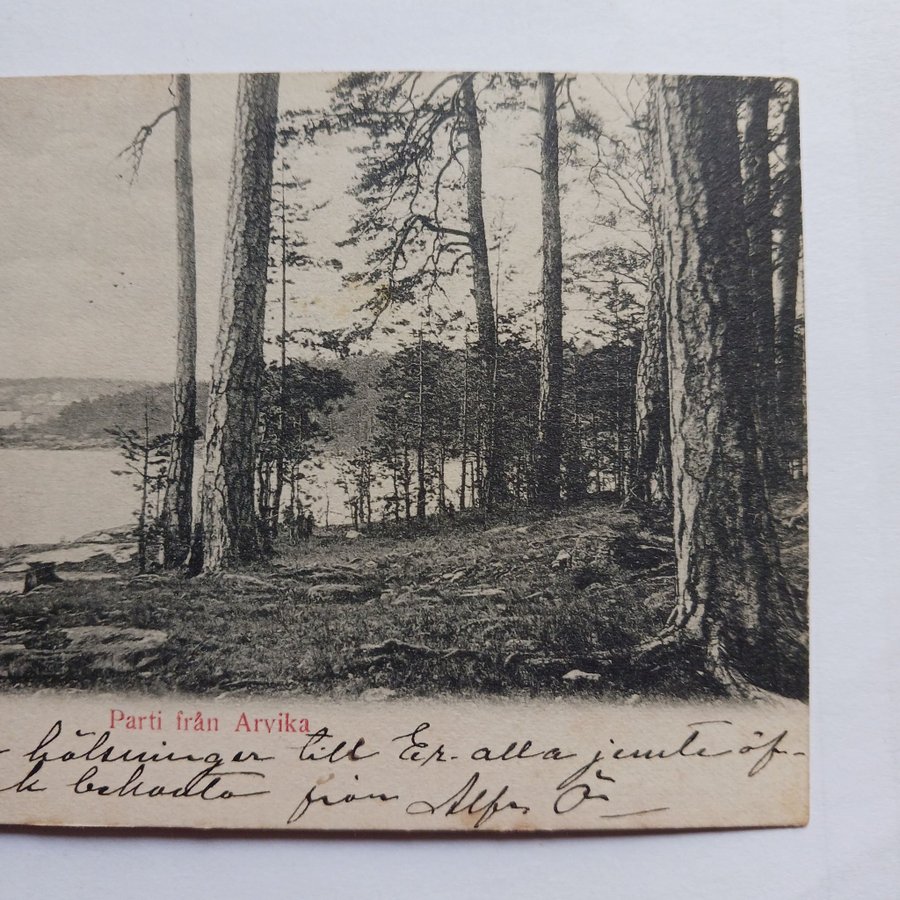 Parti från Arvika
hälsninger till Er alla jemte öf-
bekanta från Alfr Ö